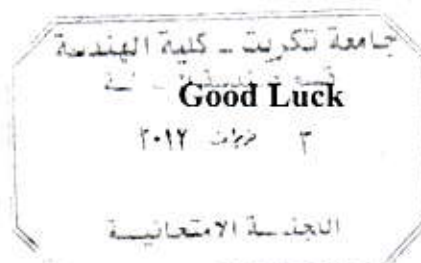 جامعة تكريت - كلية الهندسة
Good Luck
٣ ٢٠١٢
اللجنة الامتحانية